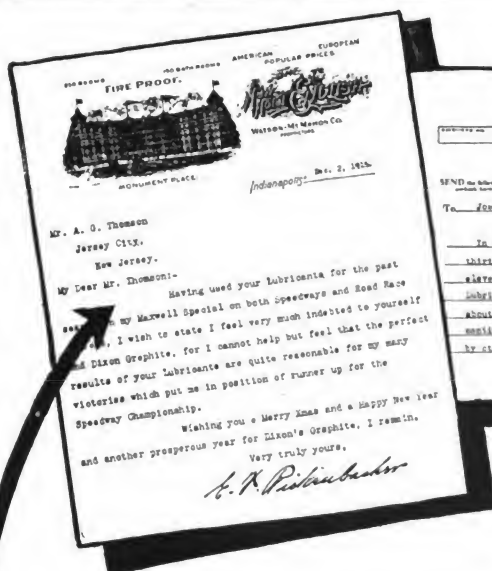 250 ROOMS
150 BATH ROOMS
AMERICAN EUROPEAN
POPULAR PRICES
FIRE PROOF.
HOTEL
WATSON-McMAHON CO.
PROPRIETORS
MONUMENT PLACE.
Indianapolis, Dec. 2, 1915.
Mr. A. G. Thomson
Jersey City,
New Jersey.
My Dear Mr. Thomson:-
Having used your Lubricants for the past
my Maxwell Special on both Speedways and Road Race
, I wish to state I feel very much indebted to yourself
Dixon Graphite, for I cannot help but feel that the perfect
results of your Lubricants are quite reasonable for my many
victories which put me in position of runner up for the
Speedway Championship.
Wishing you a Merry Xmas and a Happy New Year
and another prosperous year for Dixon's Graphite, I remain.
Very truly yours,
E. V. Rickenbacher
SEND the follow
To Jos
In
thirt
eleve
Lubri
about
by ci